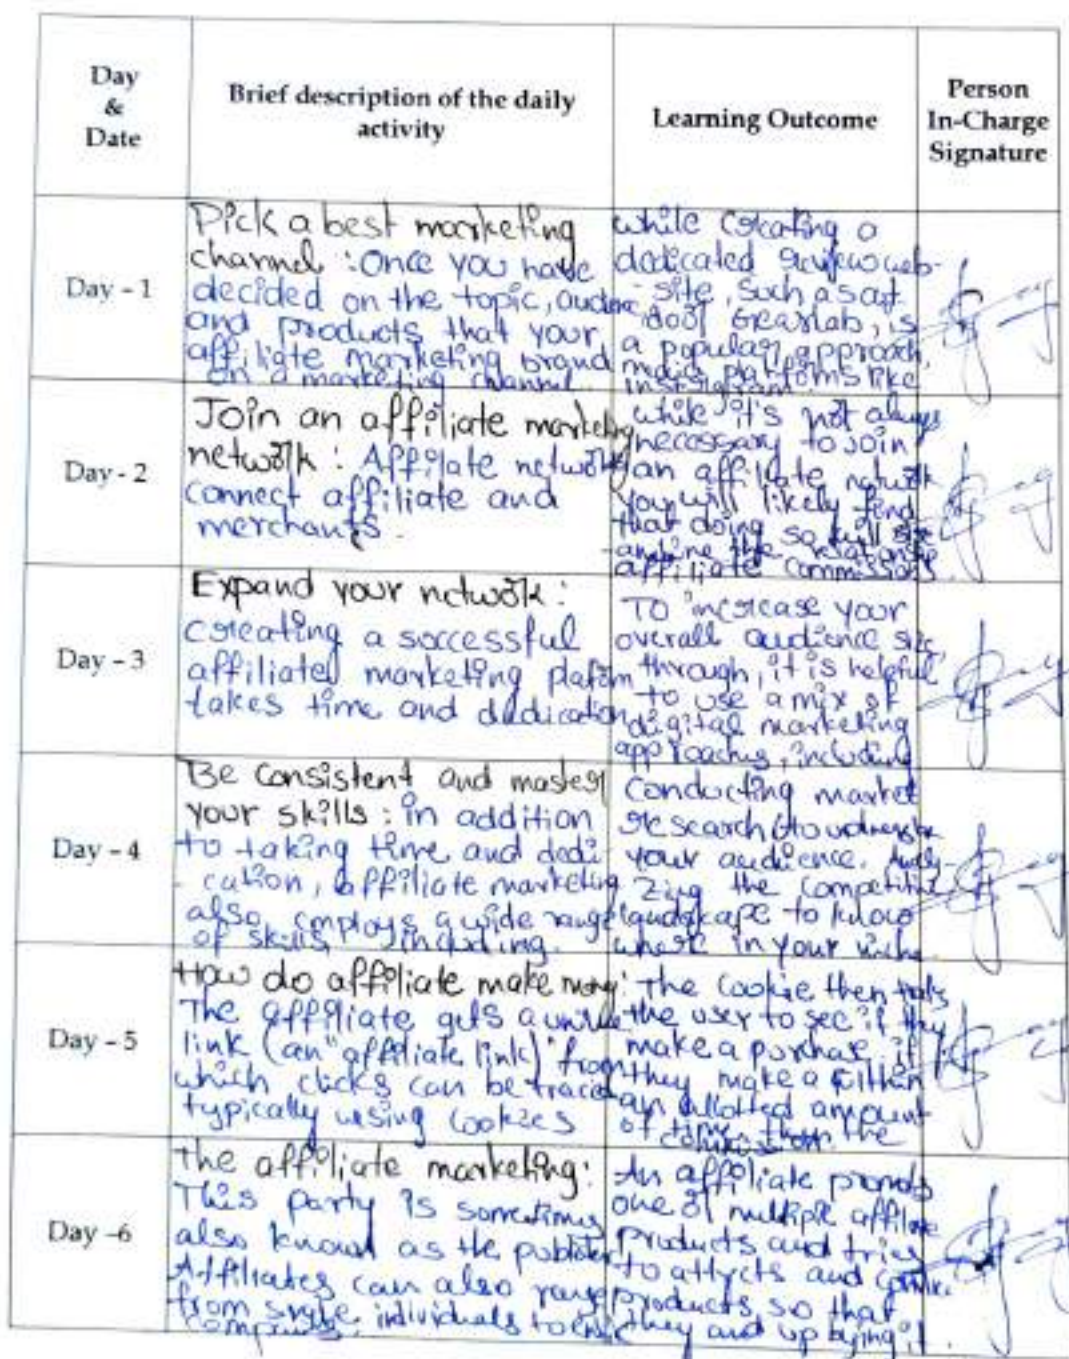 Day
&
Date
Brief description of the daily
activity
Learning Outcome
Person
In-Charge
Signature
Day - 1
Pick a best marketing
channel : Once you have
decided on the topic,
and products that your
affiliate marketing brand
on a marketing channel.
while creating a
dedicated review web-
site, such as out
door Gearlab, is
a popular approach,
media platforms like
instagram.
Day - 2
Join an affiliate marketing
network : Affiliate network
connect affiliate and
merchants.
while it's not always
necessary to join
an affiliate network
you will likely find
that doing so will
the relationship
affiliate commissions.
Day - 3
Expand your network :
creating a successful
affiliated marketing platform
takes time and dedication
To increase your
overall audience size,
through, it is helpful
to use a mix of
digital marketing
approaches, including
Day - 4
Be consistent and master
your skills : in addition
to taking time and dedi
cation, affiliate marketing
also employs a wide range
of skills including.
Conducting market
research to
your audience. Analy-
zing the competitive
landscape to know
where in your niche
Day - 5
How do affiliate make money:
The affiliate gets a
link (an "affiliate link)" from
which clicks can be traced
typically using cookies
The cookie then
the user to see if they
make a purchase, if
they make a
an allotted amount
of time, the
Day -6
The affiliate marketing:
This party is sometimes
also known as the publisher
Affiliates can also range
from single individuals to
An affiliate
one or multiple affiliate
products and tries
to and
products, so that
they end up